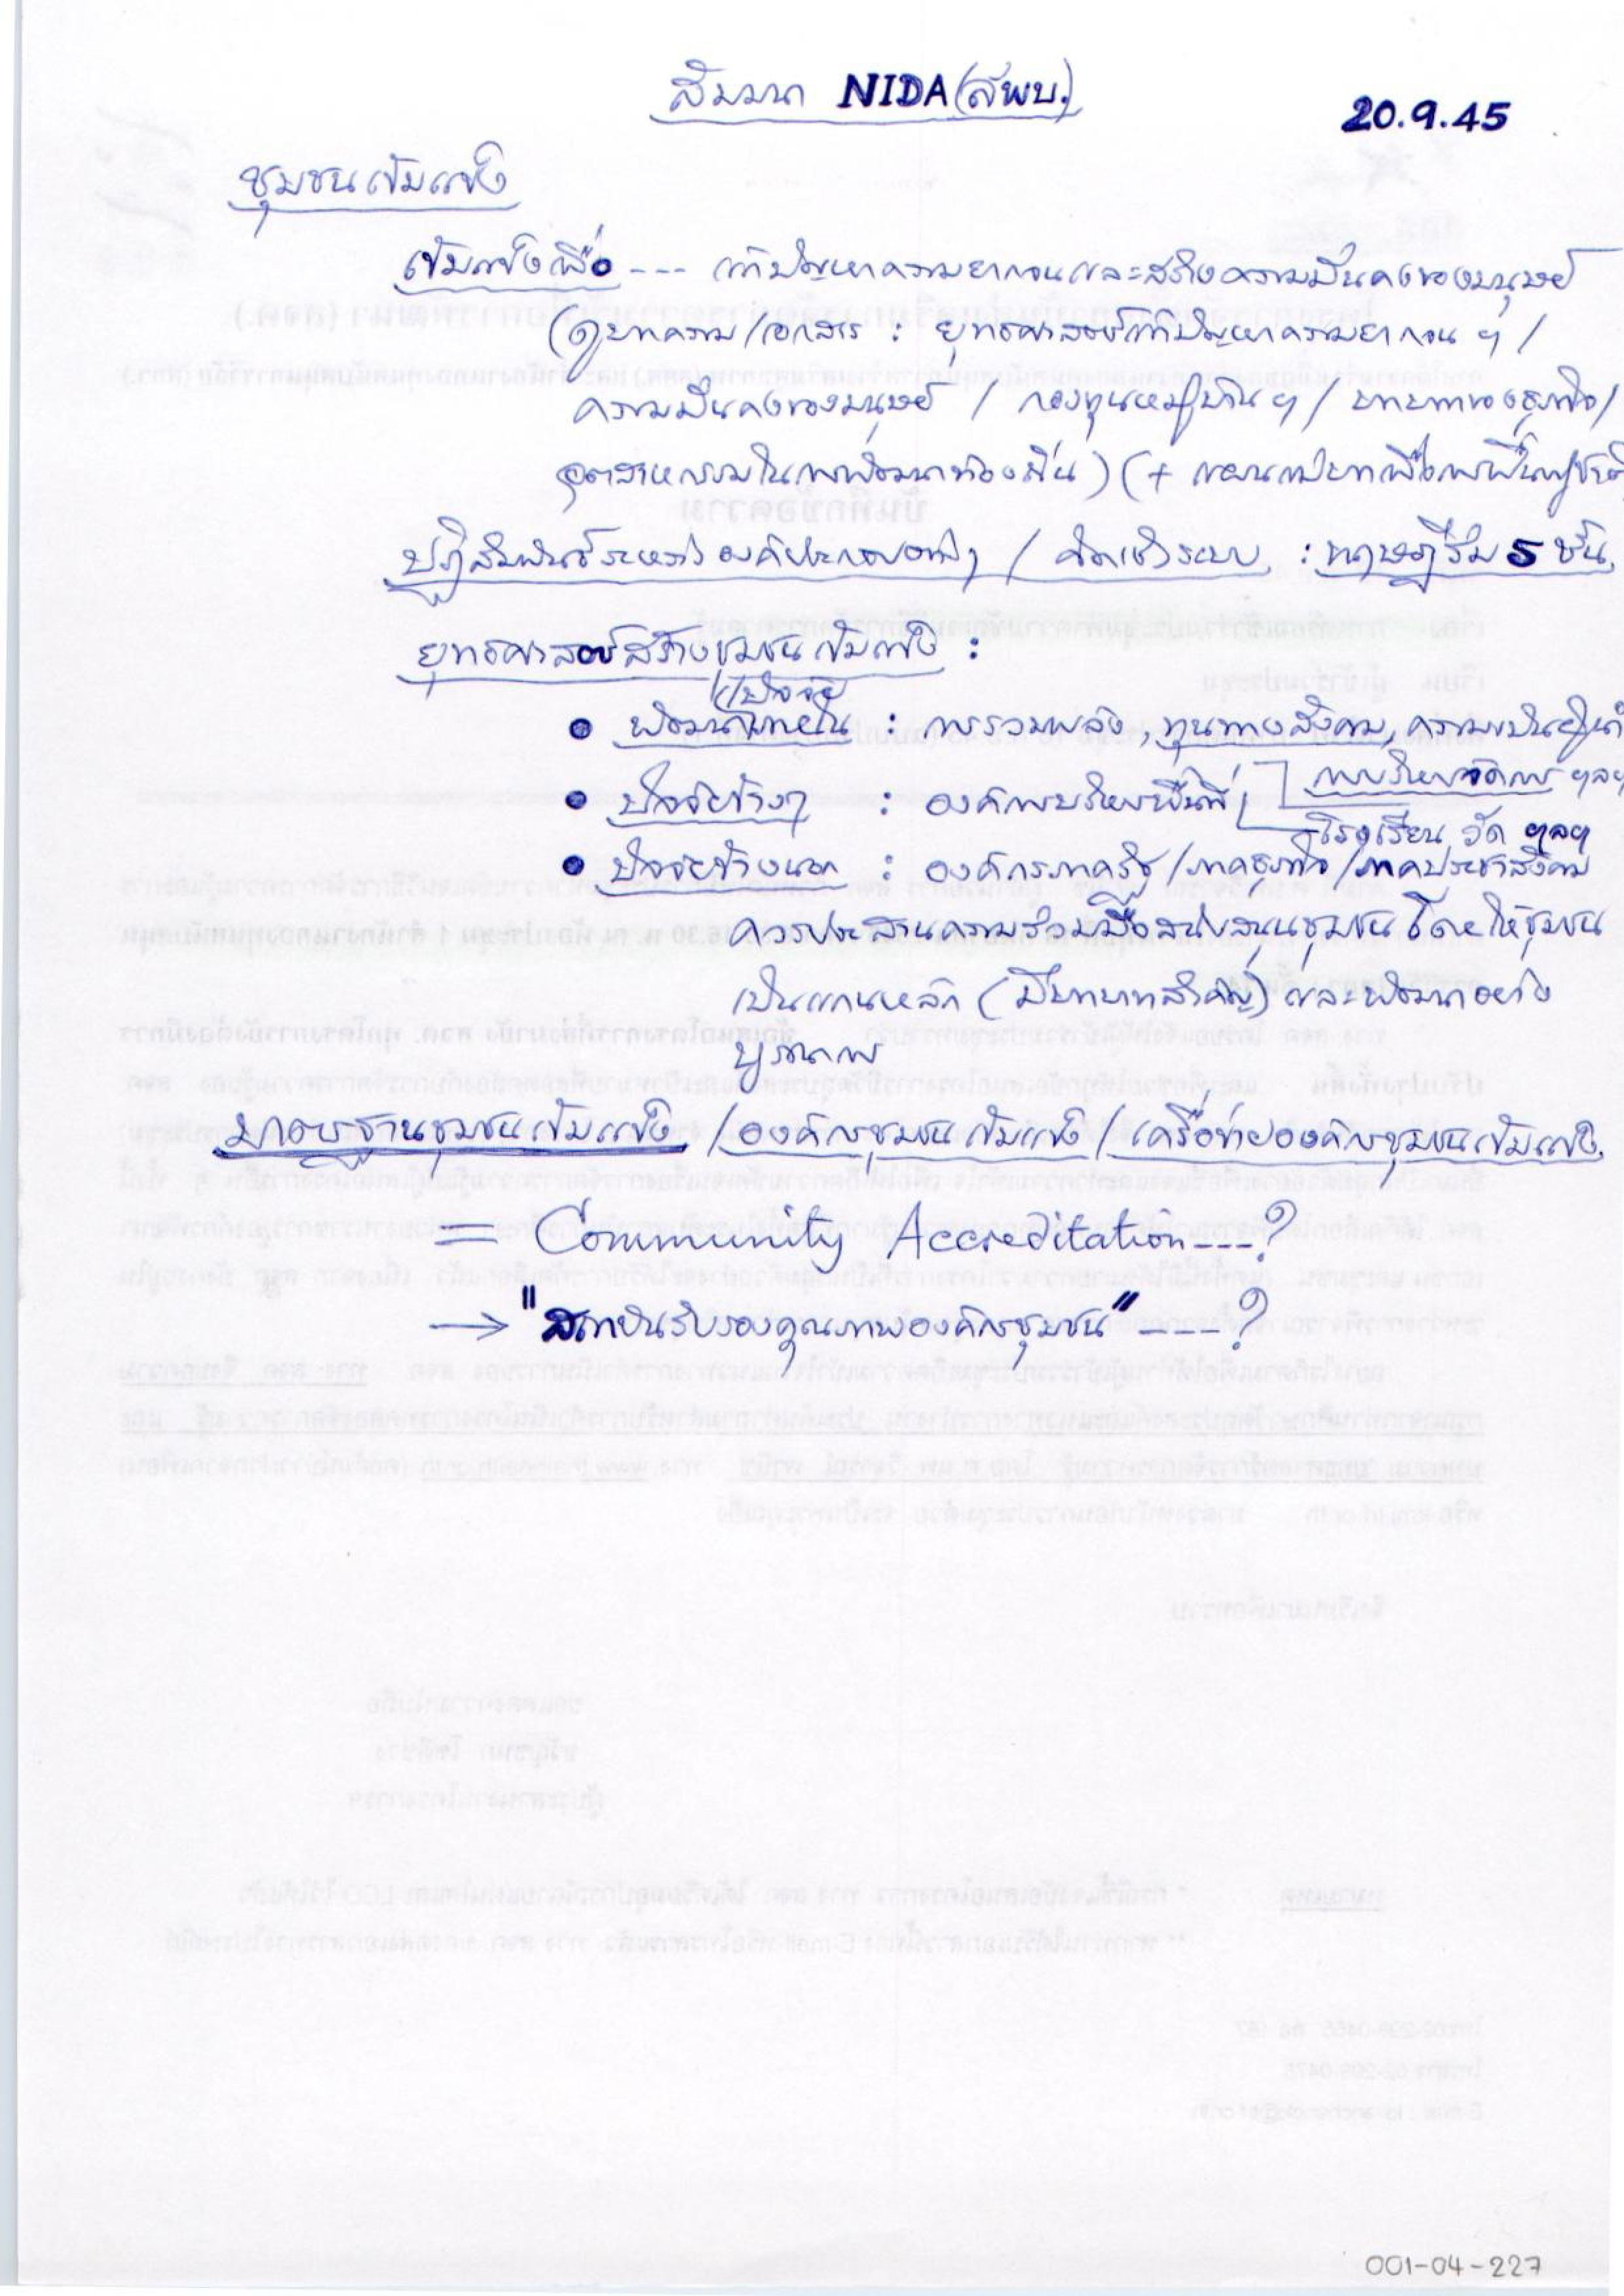 สัมมนา NIDA (สพบ.)
20.9.45
ชุมชนเข้มแข็ง
เข้มแข็งเพื่อ --- แก้ปัญหาความยากจนและสร้างความมั่นคงของมนุษย์
(ดูบทความ/เอกสาร : ยุทธศาสตร์แก้ปัญหาความยากจน ฯ /
ความมั่นคงของมนุษย์ / กองทุนหมู่บ้าน ฯ / บทบาทของธุรกิจ/
อุตสาหกรรมในการพัฒนาท้องถิ่น) (+ แผนแม่บทเพื่อการฟื้นฟูชาติ
ปฏิสัมพันธ์ระหว่างองค์ประกอบต่างๆ / คิดเชิงระบบ : ทฤษฎีร่ม 5 ชั้น
ยุทธศาสตร์สร้างชุมชนเข้มแข็ง :
ปัจจัย
• พัฒนาภายใน : การรวมพลัง, ทุนทางสังคม, ความเป็นผู้นำ
การบริหารจัดการ ฯลฯ
• ปัจจัยข้างๆ : องค์การบริหารพื้นที่
โรงเรียน วัด ฯลฯ
• ปัจจัยข้างนอก : องค์กรภาครัฐ/ภาคธุรกิจ/ภาคประชาสังคม
ควรประสานความร่วมมือสนับสนุนชุมชน โดยให้ชุมชน
เป็นแกนหลัก (มีบทบาทสำคัญ) และพัฒนาอย่าง
บูรณาการ
มาตรฐานชุมชนเข้มแข็ง / องค์กรชุมชนเข้มแข็ง / เครือข่ายองค์กรชุมชนเข้มแข็ง
— Community Accreditation ---?
→ "สถาบันรับรองคุณภาพองค์กรชุมชน" ----?
001-04-227